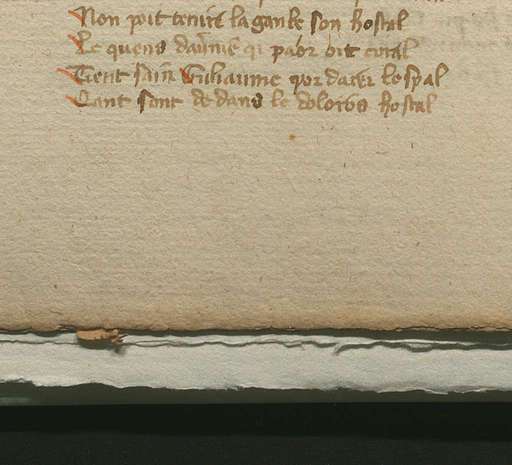 Non poit tenire la ganbe son hostal
Le quens qi paor oit coral
Tient sain Guliaume por darer lospal
Tant sont dedans le doloros hostal